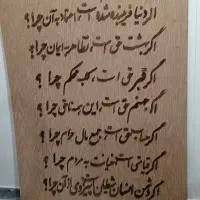 اگر دنیا فریبنده است، اعتماد به آن چرا؟
اگر بهشت حق است، تظاهر به ایمان چرا؟
اگر قبر حق است، کلبه محکم چرا؟
اگر جهنم حق است، این همه ناحقی چرا؟
اگر حساب حق است، جمع مال حرام چرا؟
اگر قیامت حق است، خیانت به مردم چرا؟
اگر دشمن انسان شیطان است، پیروی از آن چرا؟